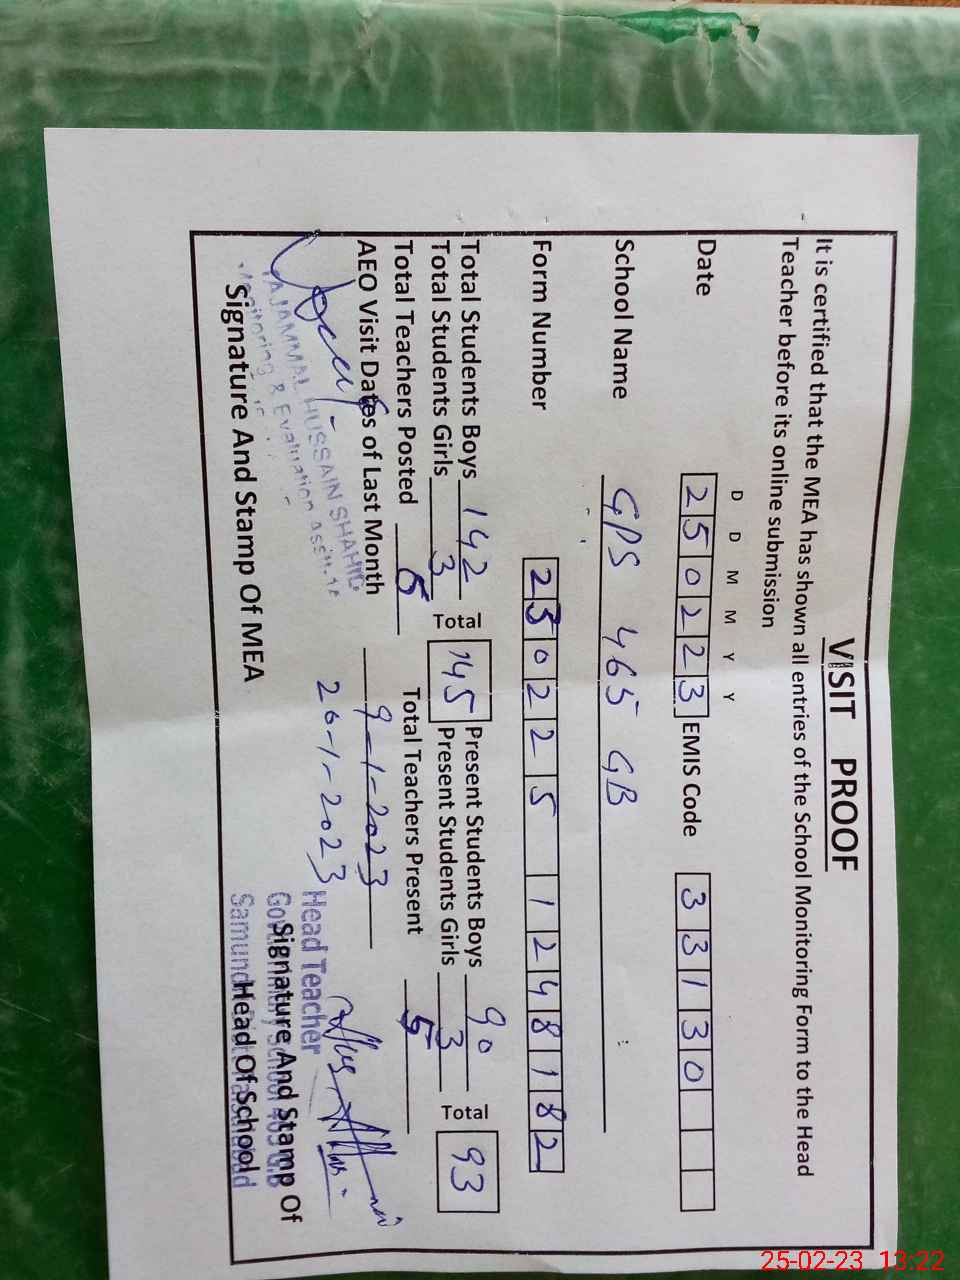 VISIT PROOF
It is certified that the MEA has shown all entries of the School Monitoring Form to the Head
Teacher before its online submission
D D M M Y Y
Date 250223 EMIS Code 33130
School Name GPS 465 GB
Form Number 230225 1248182
Total Students Boys 142 Total 145 Present Students Boys 90 Total 93
Total Students Girls 3 Present Students Girls 3
Total Teachers Posted 5 Total Teachers Present 5
AEO Visit Dates of Last Month 9-1-2023
26-1-2023
TAJAMMAL HUSSAIN SHAHID
Monitoring & Evaluation Assit
Signature And Stamp Of MEA
Head Teacher
Signature And Stamp Of
Head Of School
25-02-23 13:22